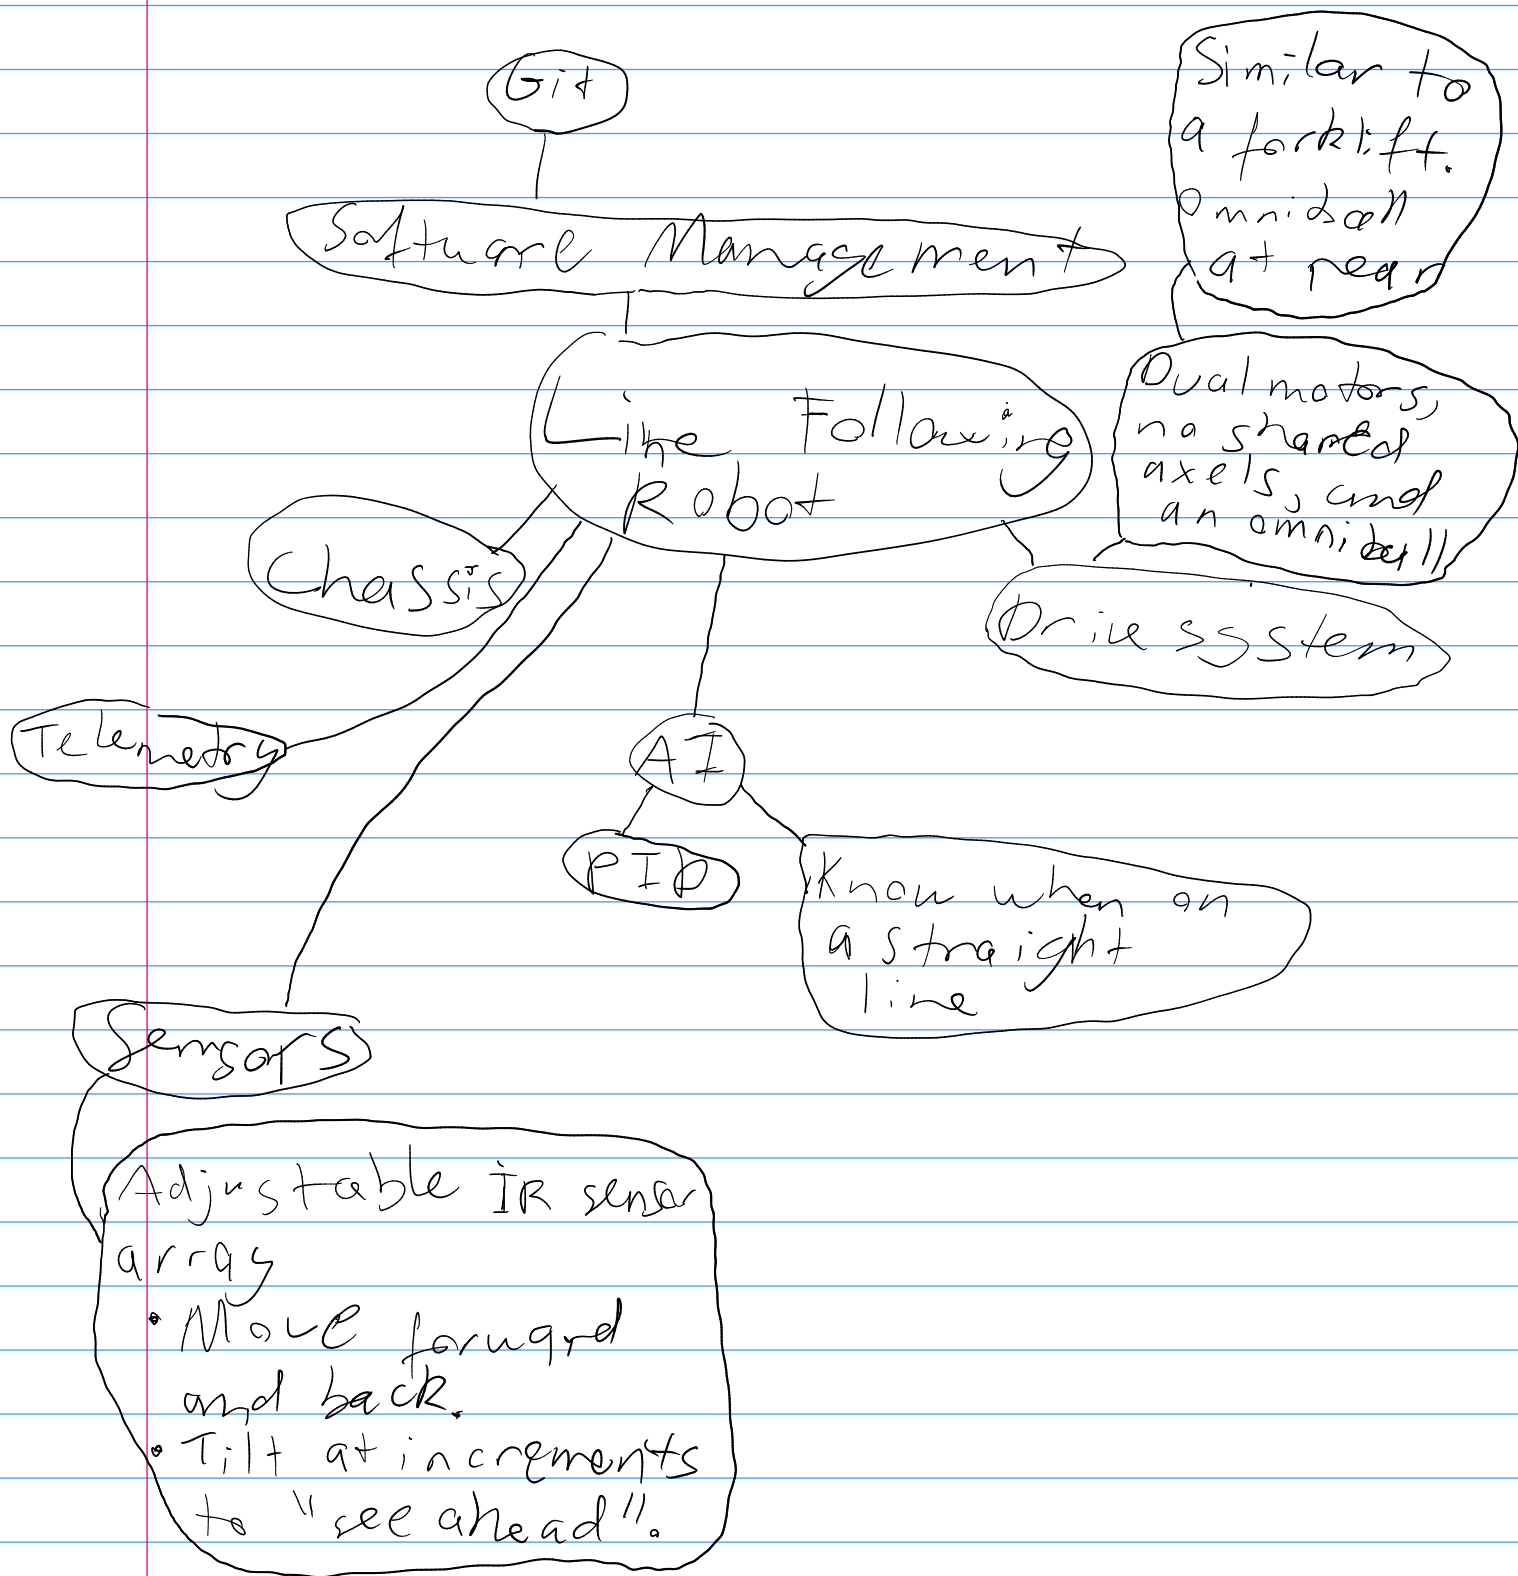 Git
Software Management
Similar to
a forklift.
Omniball
at rear
Line Following
Robot
Dual motors,
no shared
axels, and
an omniball
Chassis
Drive system
Telemetry
AI
PID
Know when on
a straight
line
Sensors
Adjustable IR sensor
array
• Move forward
and back.
• Tilt at increments
to "see ahead".